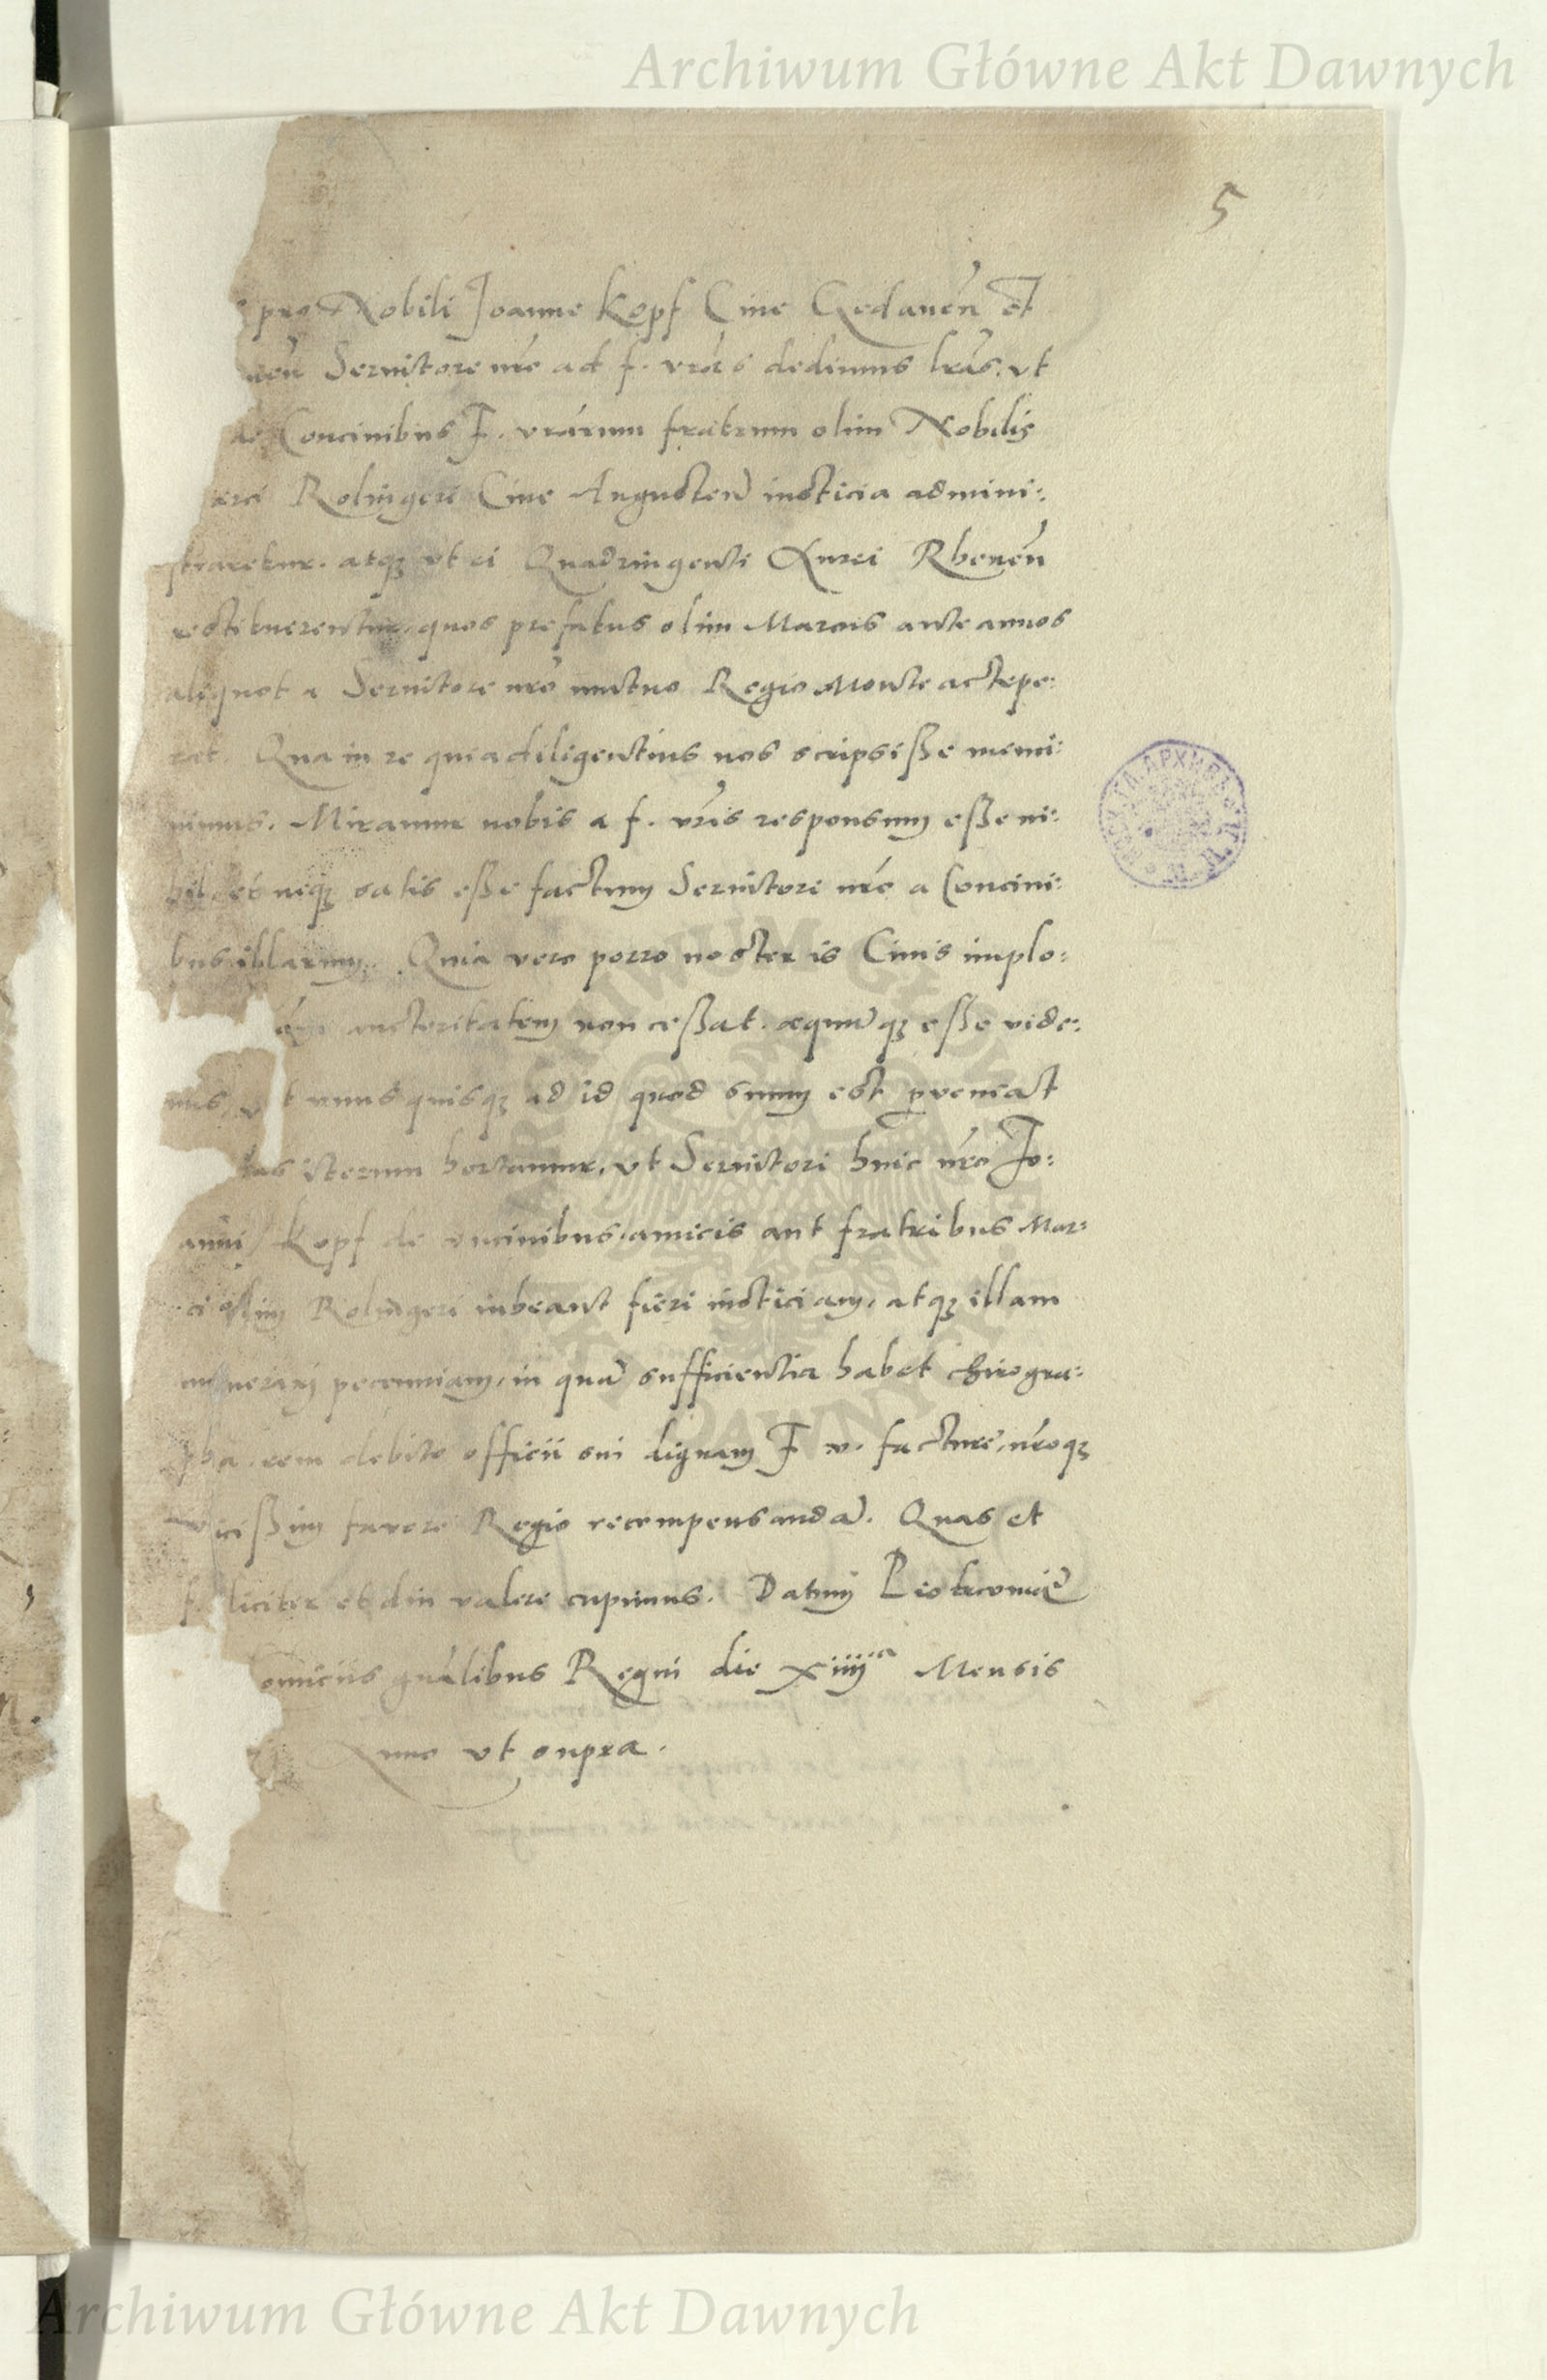 Archiwum Główne Akt Dawnych
5
pro Nobili Joanne Kopf Ciue Gedanen̄ et
Seruitore nr̄o ad f. vrās dedimus lrās. vt
de Conciuibus F. vrārum fratrum olim Nobilis
arci Rolingeri Ciue Augusten̄ iusticia admini:
straretur. atq; vt ei Quadringenti Aurei Rhenen̄
restituerentur, quos prefatus olim Marcus ante annos
aliquot a Seruitore nr̄o mutuo Regio Monte accepe:
rat Qua in re quia diligentius nos scripsisse memi:
nimus. Miramur nobis a f. vrīs responsum esse ni:
hil neq; satis esse factum Seruitore nr̄o a Conciui:
bus illarum. Quia vero porro noster is Ciuis implo:
auctoritatem non cessat. æquūq; esse vide:
mus, vt vnusquisq; ad id quod suum est perueniat
has iterum hortamur, vt Seruitori huic nr̄o Jo:
anni Kopf de ciuibus, amicis aut fratribus Mar:
ci olim Rolingeri iubeant fieri iusticiam, atq; illam
numerari pecuniam, in quā sufficientia habet chirogra:
pha. rem debito officii sui dignam F. v. facturē, nr̄oq;
vicissim fauore Regio recompensandā. Quas et
feliciter et diu valere cupimus. Datum Piotrcouiē
omiciis gn̄alibus Regni die xiiij<sup>a</sup> Mensis
Anno vt supra.
Archiwum Główne Akt Dawnych